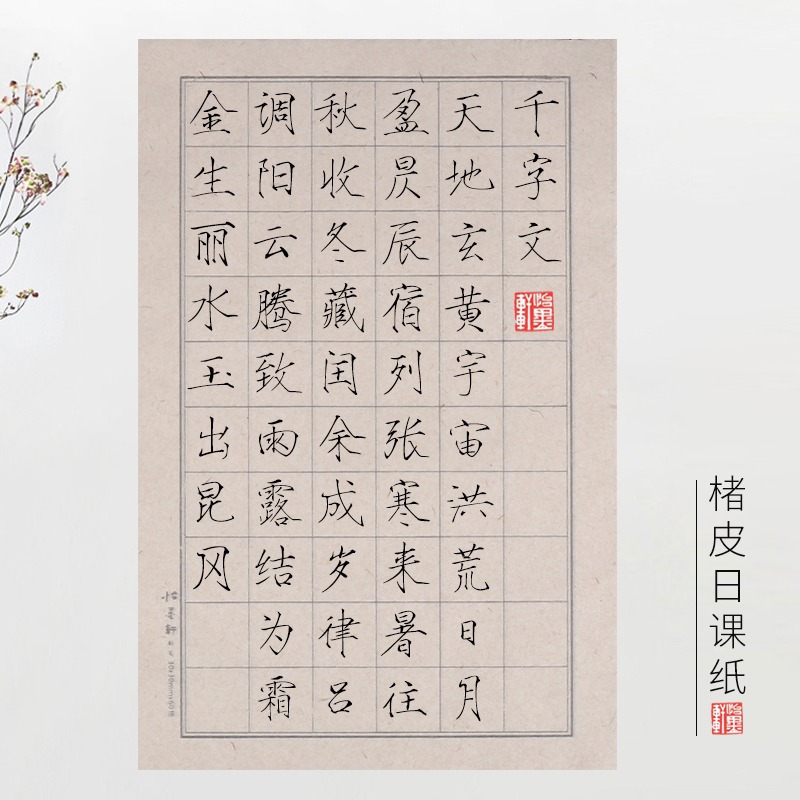 千字文
怡墨軒
天地玄黄宇宙洪荒日月
盈昃辰宿列张寒来暑往
秋收冬藏闰余成岁律吕
调阳云腾致雨露结为霜
金生丽水玉出昆冈
怡墨軒
楮皮日课纸
怡墨軒